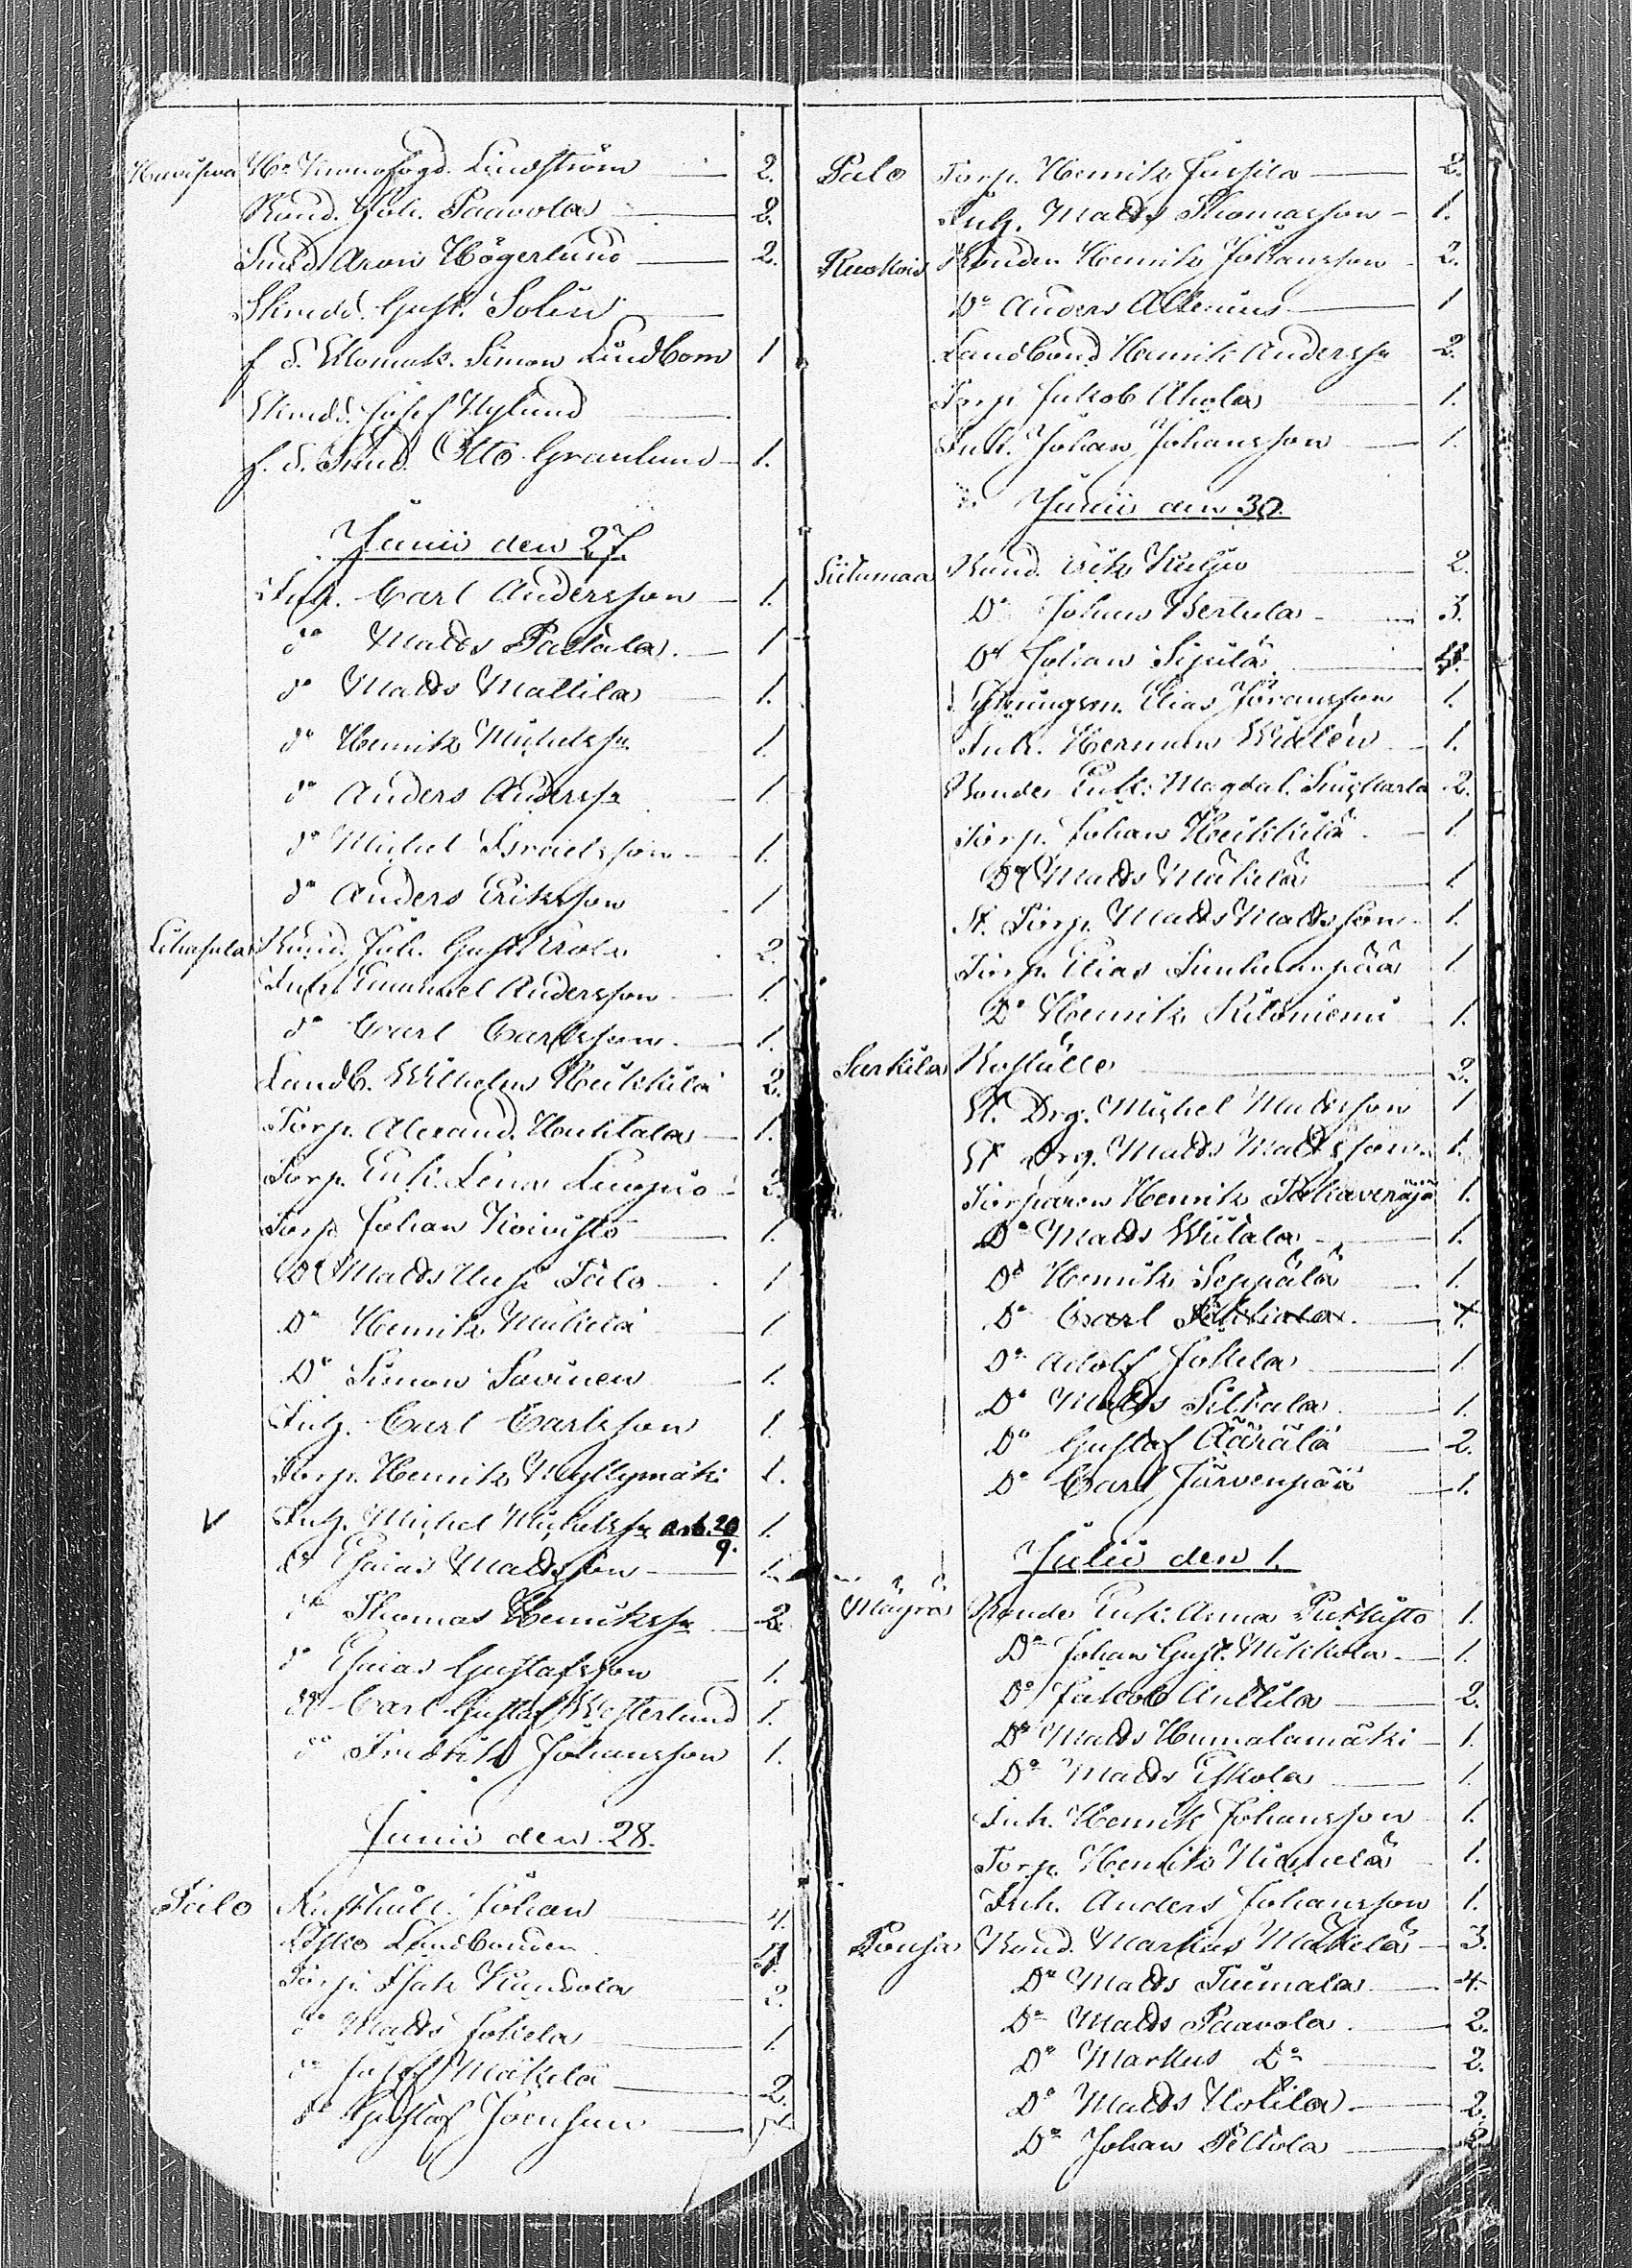 Hr Kronofogd. Lindström 2.
Bond. Joh. Paavola 2.
Smed Arvis Högerlund 2.
Skredd. Gust. Solin
f. d. Klomak. Simon Lindbom 1
Skredd. Josef Nylund
f. d. Smed. Otto Granlund 1.
Junii den 27.
Inh. Carl Andersson 1.
do Matts Pattala 1
do Matts Mattila 1.
do Henrik Michelss 1
do Anders Anderss 1
do Michel Israelsson 1.
do Anders Eriksson 1
Liihasula Bond. Joh. Gust. 2.
Inh. Emanuel Andersson 1.
do Carl Carlsson 1.
Landb. Wilhelm Heikkilä 2.
Torp. Alexand. Huhtala 1.
Torp. Enk. Lena
Torp. Johan Koivisto 1.
Do Matts Uusi Talo 1
Do Henrik Mäkelä 1
Do Simon Savinen 1.
Inh. Carl Carlsson 1.
Torp. Henrik Myllymäki 1.
V Inh. Michel Michelss 20 1.
9.
do Esaias Mattsson 1.
do Thomas Henrikss 2.
do Esaias Gustafsson 1.
do Carl Gustaf Westerlund 1.
do Fredrik Johansson 1.
Junii den 28.
Palo Rusthåll. Johan 4.
Landbonden
Torp. Isak 2.
do Matts Jokela 1.
do Josef Mäkelä 2.
do Gustaf
Palo Torp. Henrik Jussila 2.
Inh. Matts Thomasson 1.
Ruokois Bonden Henrik Johansson 2.
Do Anders Allenius 1
Landbond Henrik Anderss 2.
Torp. Jakob Ahola 1.
Inh. Johan Johansson 1.
Junii den 30.
Bond. Erik 2.
Do Johan Bertula 3.
Do Johan Sipilä
Elias Göransson 1.
Inh. Herman Widlén 1.
Bonde Enk. Magdal. 2.
Torp. Johan Heikkilä 1
Do Matts Mäkelä 1
St. Torp. Matts Mattsson 1.
Torp. Elias 1
Do Henrik Kiloniemi 1.
Sarkila Rusthålle 2.
St. Drg. Michel Mattsson 1
St Drg. Matts Mattsson 1.
Torparen Henrik 1.
Do Matts Wiitala 1.
Do Henrik Seppälä 1.
Do Carl
Do Adolf Jokela 1
Do Matts Siltala 1.
Do Gustaf Äärälä 2.
Do Carl Järvenpää 1.
Julii den 1.
Mäyrä Bonde Enk. Anna Pukkisto 1.
Do Johan Gust. Mikkola 1.
Do Jakob Anttila 2.
Do Matts Humalamäki 1.
Do Matts Eskola 1.
Inh. Henrik Johansson 1.
Torp. Henrik Niemelä 1.
Inh. Anders Johansson 1.
Ponsa Bond. Markus Mäkelä 3.
Do Matts Tuimala 4.
Do Matts Paavola 2.
Do Markus Do 2.
Do Matts Kotila 2.
Do Johan Peltola